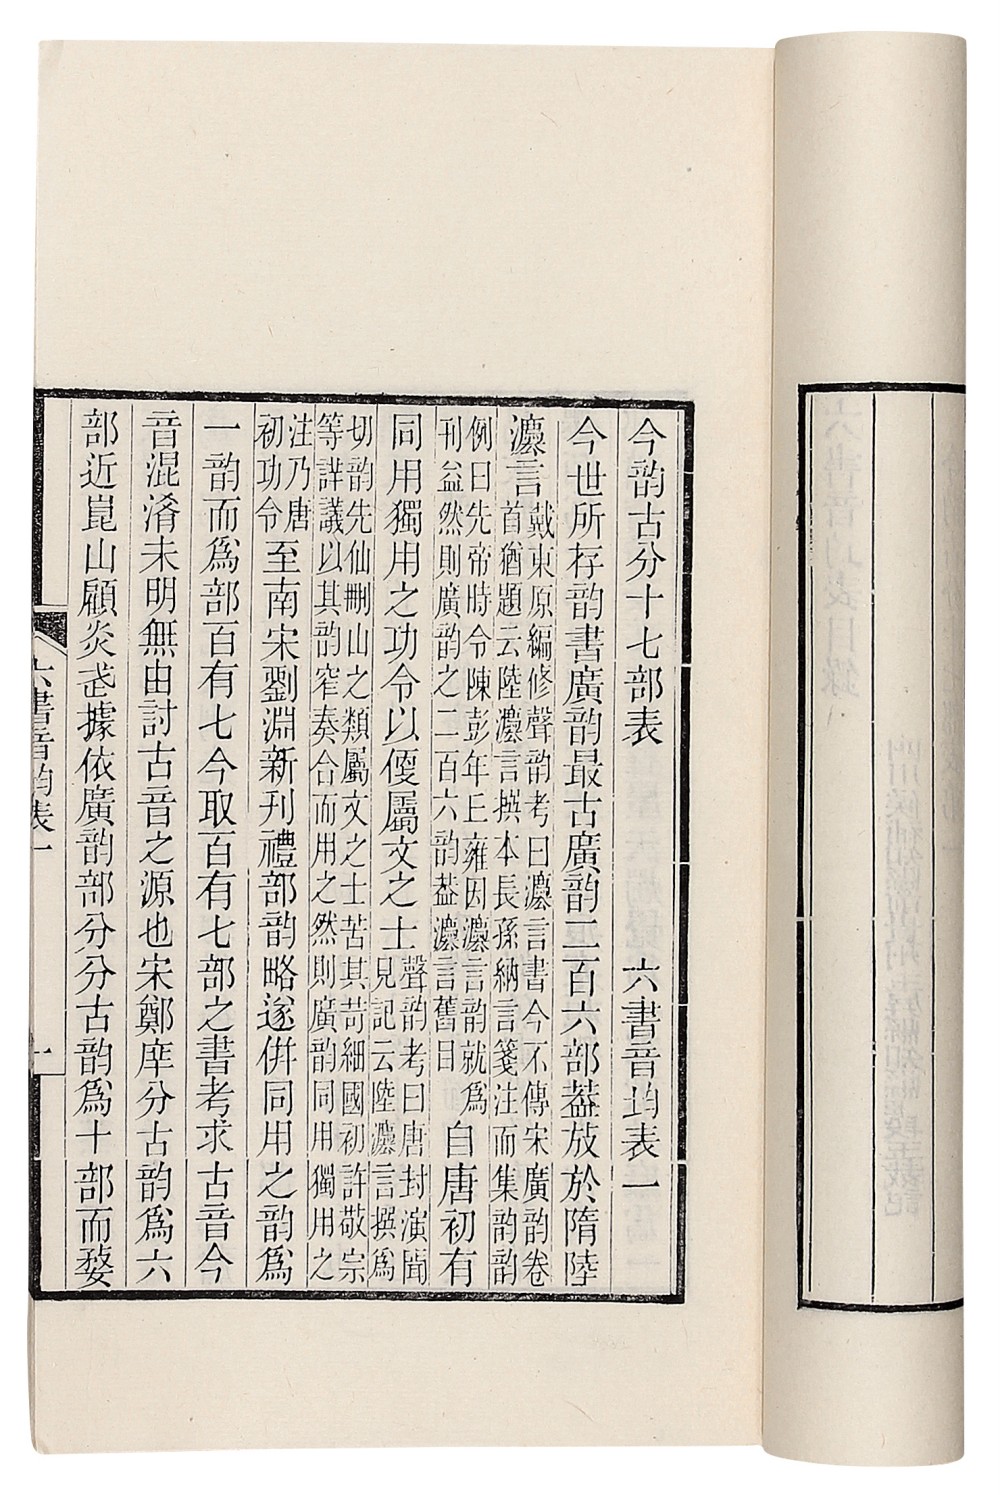 今韵古分十七部表　六書音均表一
今世所存韵書廣韵最古廣韵二百六部葢放於隋陸
灋言
戴東原編修聲韵考曰灋言書今不傳宋廣韵卷
首猶題云陸灋言撰本長孫納言箋注而集韵韵
例曰先帝時令陳彭年丘雍因灋言韵就爲
刊益然則廣韵之二百六韵葢灋言舊目
自唐初有
同用獨用之功令以便屬文之士
聲韵考曰唐封演聞
見記云陸灋言撰爲
切韵先仙刪山之類屬文之士苦其苛細國初許敬宗
等詳議以其韵窄奏合而用之然則廣韵同用獨用之
注乃唐
初功令
至南宋劉淵新刊禮部韵略遂倂同用之韵爲
一韵而爲部百有七今取百有七部之書考求古音今
音混淆未明無由討古音之源也宋鄭庠分古韵爲六
部近崑山顧炎武據依廣韵部分分古韵爲十部而婺
六書音均表一
一